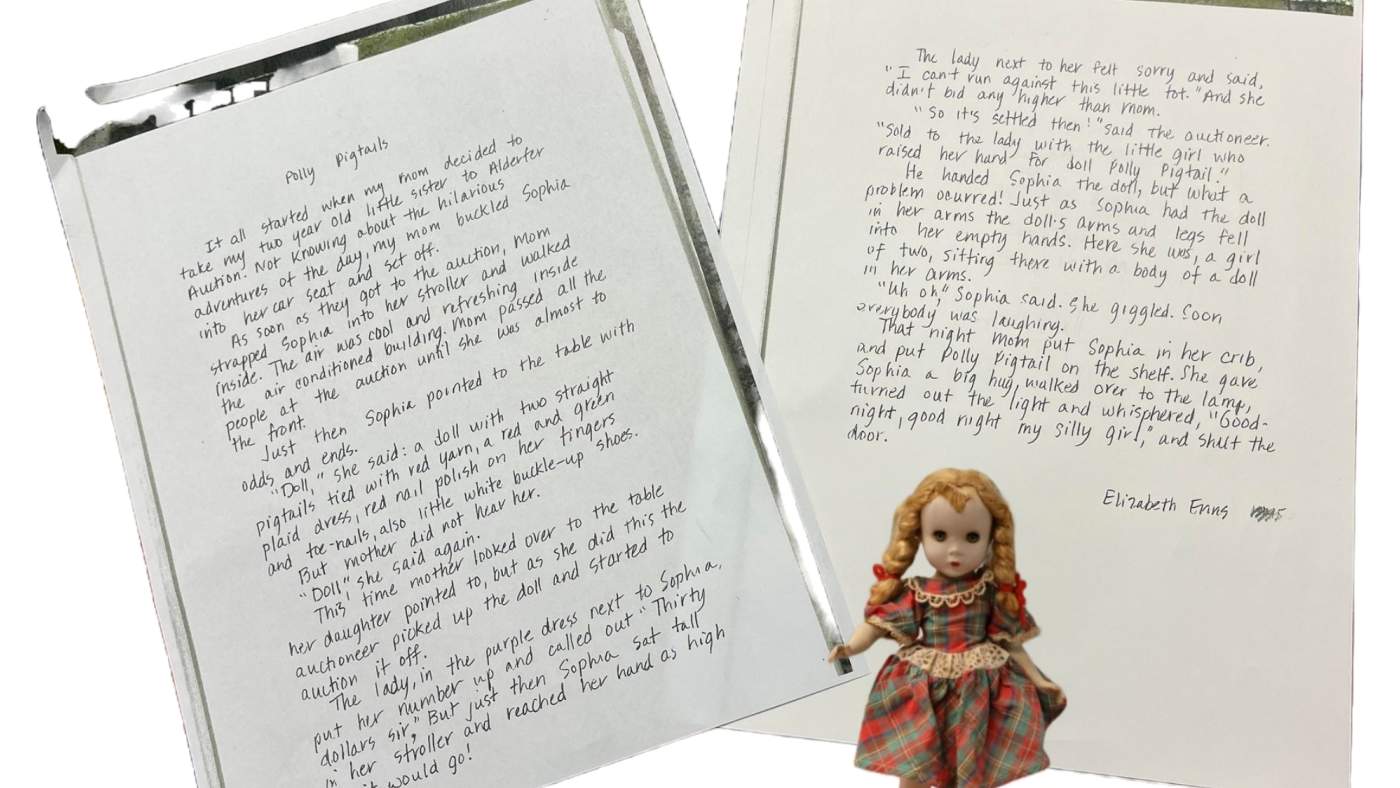 Polly Pigtails
It all started when my mom decided to
take my two year old little sister to Alderfer
Auction. Not knowing about the hilarious
adventures of the day, my mom buckled Sophia
into her car seat and set off.
As soon as they got to the auction, Mom
strapped Sophia into her stroller and walked
inside. The air was cool and refreshing inside
the air conditioned building. Mom passed all the
people at the auction until she was almost to
the front.
Just then Sophia pointed to the table with
odds and ends.
"Doll," she said: a doll with two straight
pigtails tied with red yarn, a red and green
plaid dress, red nail polish on her fingers
and toe-nails, also little white buckle-up shoes.
But mother did not hear her.
"Doll", she said again.
This time mother looked over to the table
her daughter pointed to, but as she did this the
auctioneer picked up the doll and started to
auction it off.
The lady, in the purple dress next to Sophia,
put her number up and called out "Thirty
dollars sir". But just then Sophia sat tall
in her stroller and reached her hand as high
it would go!
The lady next to her felt sorry and said,
"I can't run against this little tot." And she
didn't bid any higher than mom.
"So it's settled then!" said the auctioneer.
"Sold to the lady with the little girl who
raised her hand for doll Polly Pigtail."
He handed Sophia the doll, but what a
problem ocurred! Just as Sophia had the doll
in her arms the doll's arms and legs fell
into her empty hands. Here she was, a girl
of two, sitting there with a body of a doll
in her arms.
"Uh oh," Sophia said. She giggled. Soon
everybody was laughing.
That night Mom put Sophia in her crib,
and put Polly Pigtail on the shelf. She gave
Sophia a big hug, walked over to the lamp,
turned out the light and whispered, "Good-
night, good night my silly girl," and shut the
door.
Elizabeth Erins